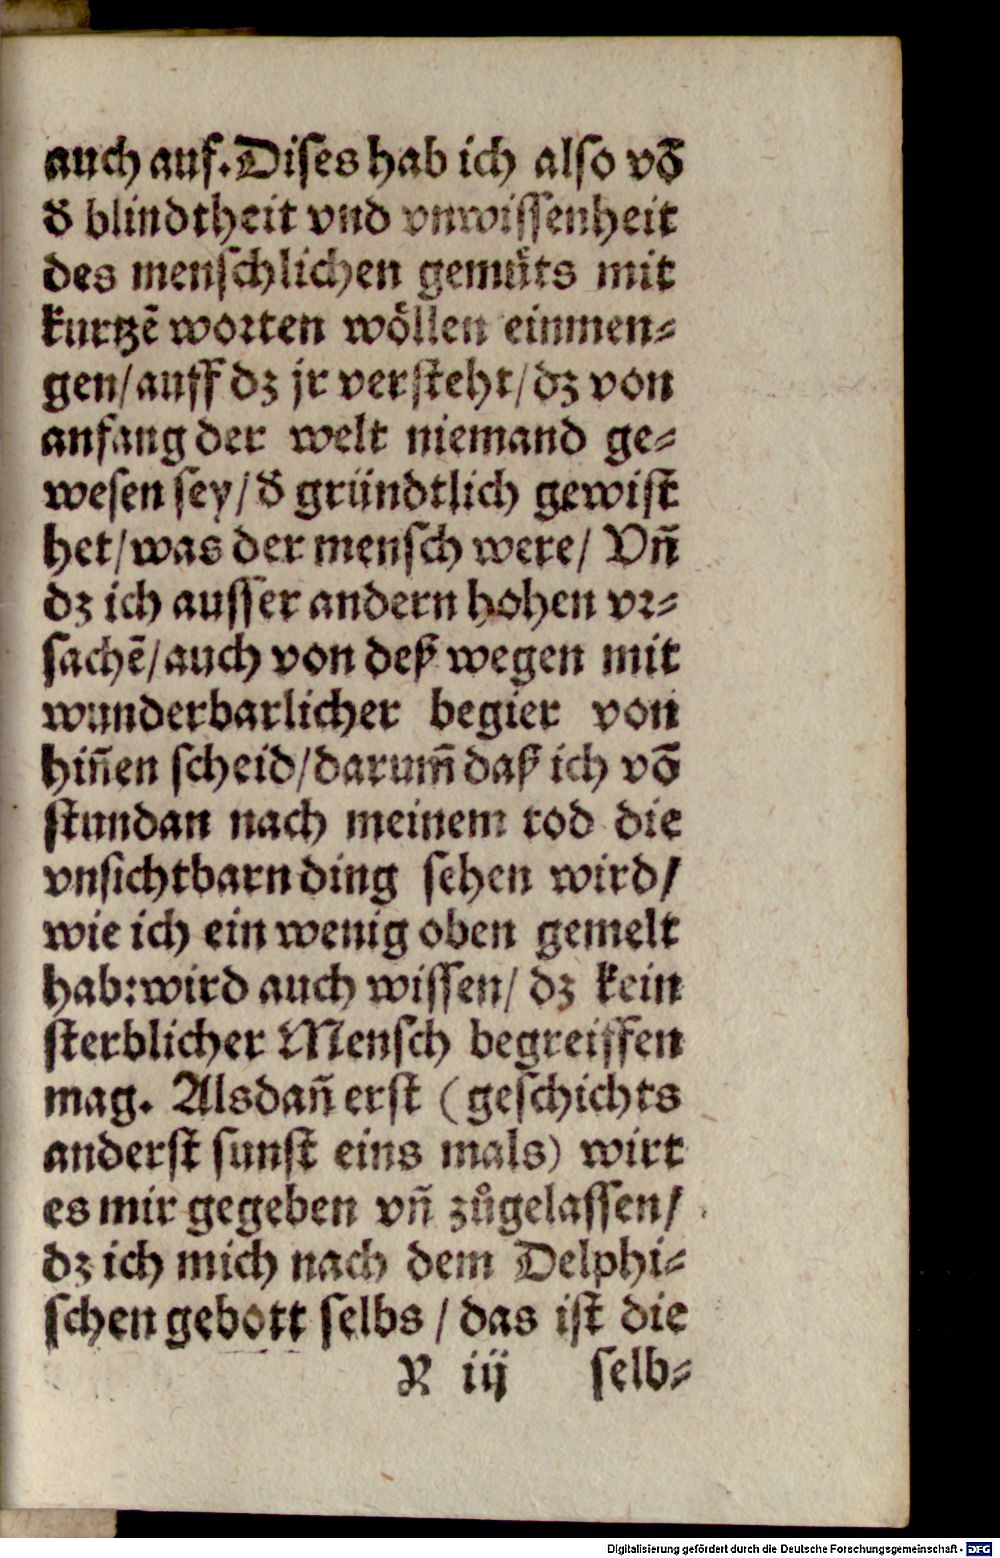 auch auf. Diſes hab ich alſo võ
đ blindtheit vnd vnwiſſenheit
des menſchlichen gemuͤts mit
kurtzẽ worten woͤllen einmen⸗
gen/ auff dz jr verſteht/ dz von
anfang der welt niemand ge⸗
weſen ſey/ đ gründtlich gewiſt
het/ was der menſch were/ Vñ
dz ich auſſer andern hohen vr⸗
ſachẽ/ auch von deß wegen mit
wunderbarlicher begier von
hiñen ſcheid/ darum̃ daß ich võ
ſtundan nach meinem tod die
vnſichtbarn ding ſehen wird/
wie ich ein wenig oben gemelt
hab: wird auch wiſſen/ dz kein
ſterblicher Menſch begreiffen
mag. Alsdañ erſt (geſchichts
anderſt ſunſt eins mals) wirt
es mir gegeben vñ zuͦgelaſſen/
dz ich mich nach dem Delphi⸗
ſchen gebott ſelbs / das iſt die
R iij ſelb⸗
Digitalisierung gefördert durch die Deutsche Forschungsgemeinschaft - DFG